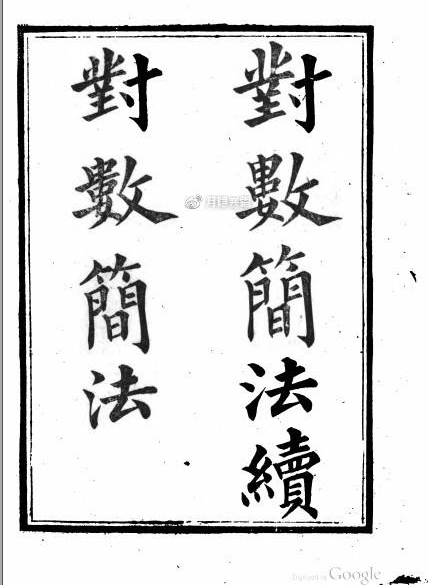 對數簡法續
對數簡法
Digitized by Google